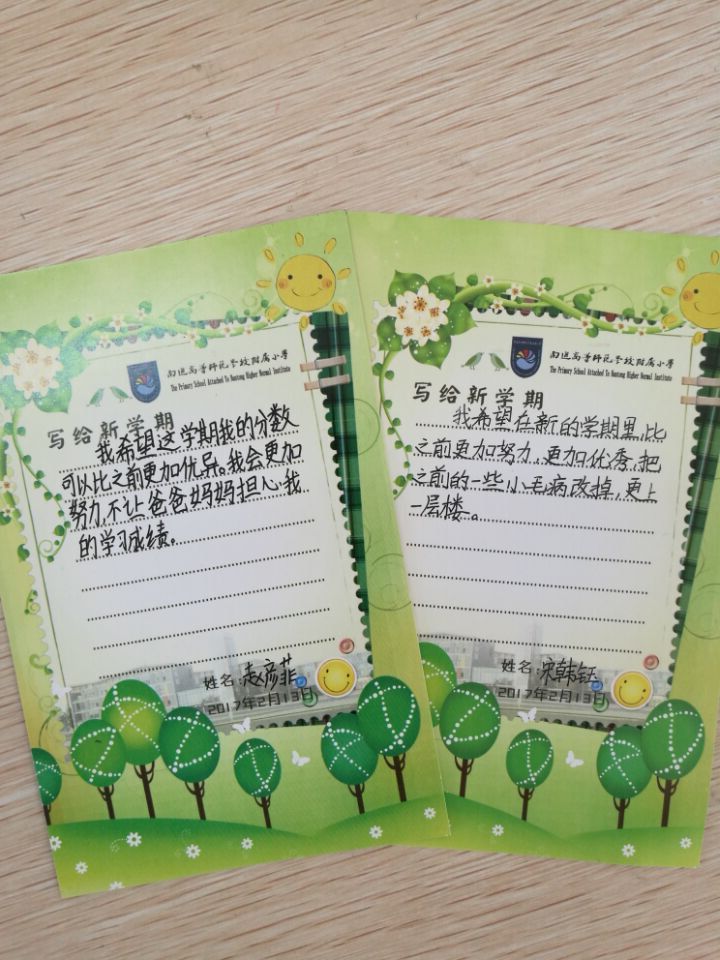 南通高等师范学校附属小学
The Primary School Attached To Nantong Higher Normal Institute
写给新学期
我希望这学期我的分数
可以比之前更加优异。我会更加
努力,不让爸爸妈妈担心我
的学习成绩。
姓名:赵彦菲
2017年2月13日
南通高等师范学校附属小学
The Primary School Attached To Nantong Higher Normal Institute
写给新学期
我希望在新的学期里,比
之前更加努力,更加优秀,把
之前的一些小毛病改掉,更上
一层楼。
姓名:宋韩钰
2017年2月13日